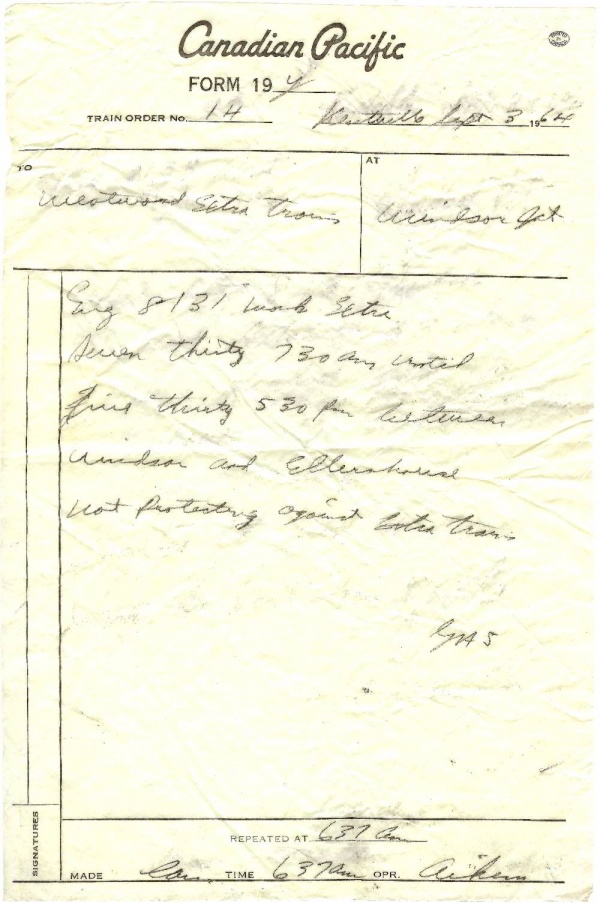 Canadian Pacific
FORM 19 Y
TRAIN ORDER No. 14 Kentville Sept 3 1964
TO Westward Extra Trains
AT Windsor Jct
Eng 8131 work Extra
Seven thirty 730 am until
five thirty 530 pm between
Windsor and Ellershouse
not Protecting against Extra trains
SIGNATURES
REPEATED AT 637 am
MADE Com TIME 637 am OPR. Aikens